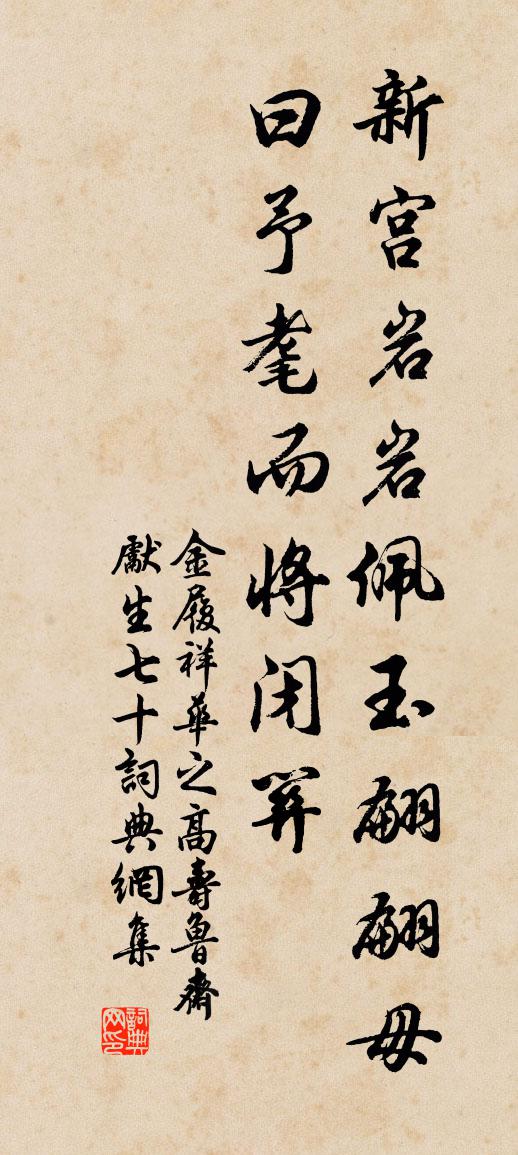 新宫岩岩佩玉翩翩毋
曰予耄而将闭关
金履祥华之高寿鲁斋
献生七十词典网集
词典网印